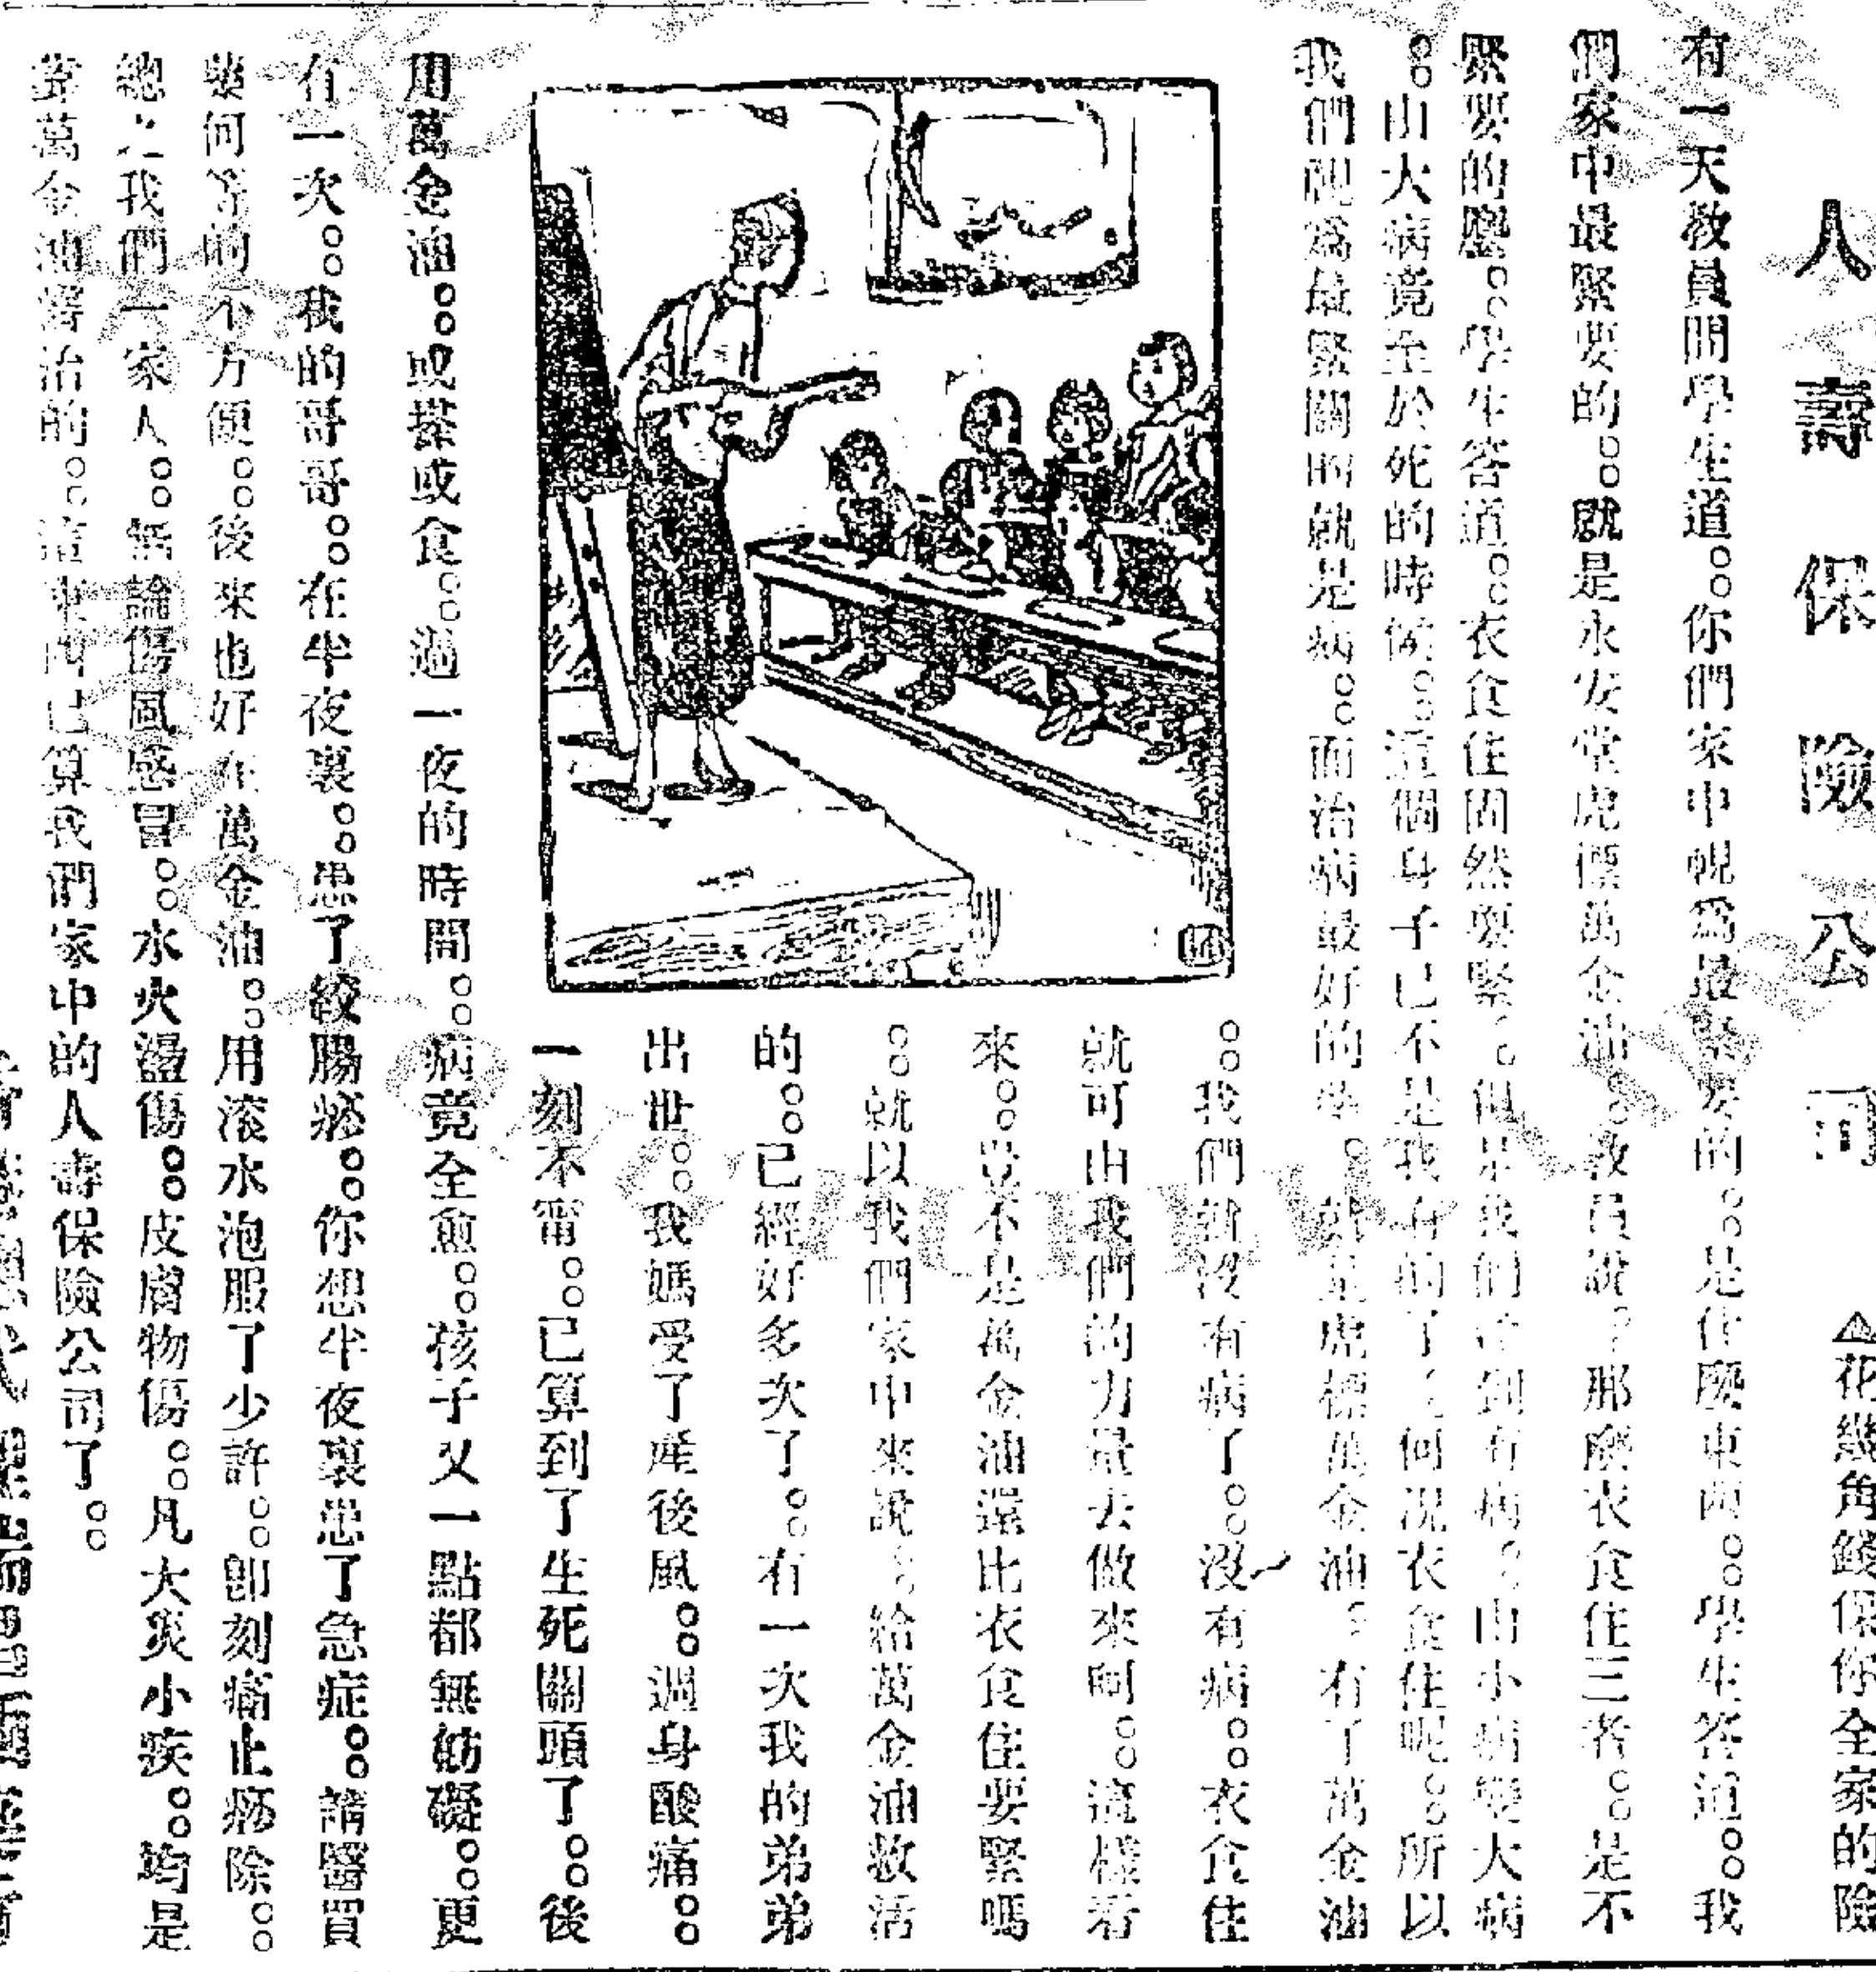 人壽保險公司
▲花幾角錢保你全家的險
有一天教員問學生道。。你們家中視爲最緊要的。。是什麼東西。。學生答道。。我
們家中最緊要的。。就是永安堂虎標萬金油。。教員說。。那麼衣食住三者。。是不
緊要的麼。。學生答道。。衣食住固然要緊。。但是我們 到有病。。由小病變大病
。。由大病竟至於死的時候。。這個身子已不是我有的了。。何况衣食住呢。。所以
我們視爲最緊關的就是病。。而治病最好的 。就是虎標萬金油。。有了萬金油
。。我們就沒有病了。。沒有病。。衣食住
就可由我們的力量去做來啊。。這樣看
來。。豈不是萬金油還比衣食住要緊嗎
。。就以我們家中來說。。給萬金油救活
的。。已經好多次了。。有一次我的弟弟
出世。。我媽受了產後風。。週身酸痛。。
一刻不甯。。已算到了生死關頭了。。後
用萬金油。。或搽或食。。過一夜的時間。。病竟全愈。。孩子又一點都無妨礙。。更
有一次。。我的哥哥。。在半夜裏。。患了絞腸痧。。你想半夜裏患了急症。。請醫買
藥何等的不方便。。後來也好在萬金油。。用滚水泡服了少許。。卽刻痛止痧除。。
總之我們一家人。。無論傷風感冒。。水火盪傷。。皮膚物傷。。凡大災小疾。。均是
靠萬金油醫治的。。這東西已算我們家中的人壽保險公司了。。